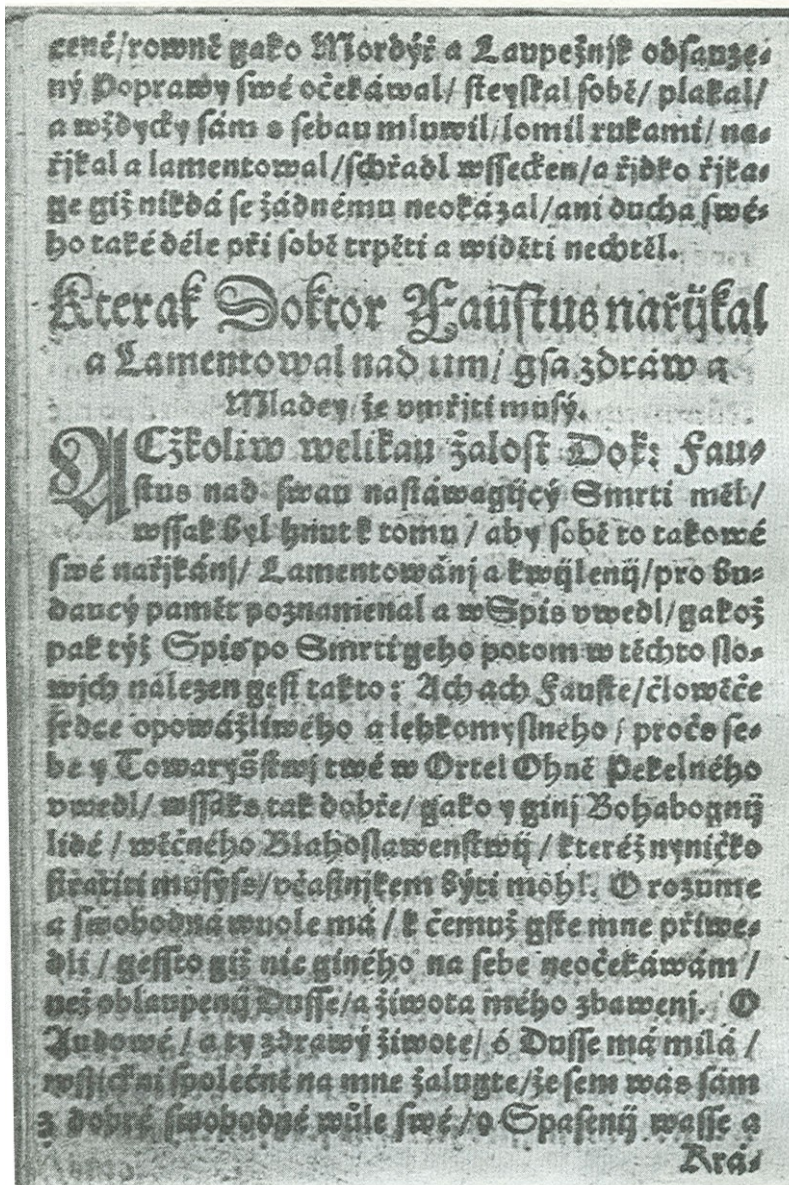 cené/rowně gako Mordýř a Laupežnjk obſauze⸗
ný Poprawy ſwé očekáwal/ ſteyſkal ſobě/ plakal/
a wždycky ſám s ſebau mluwil/lomil rukami/ na⸗
řjkal a lamentowal/ſchřadl wſſecken/a řjdko řjka⸗
ge giž nikdá ſe žádnému neokázal/ani ducha ſwé⸗
ho také déle při ſobě trpěti a widěti nechtěl.
Kterak Doktor Fauſtus nařijkal
a Lamentowal nad tim/ gſa zdráw a
Mladey/ že vmřjti muſý.
ACžkoliw welikau žaloſt Dok: Fau⸗
ſtus nad ſwau naſtáwagijcý Smrti měl/
wſſak byl hnut k tomu/ aby ſobě to takowé
ſwé nařjkánj/ Lamentowánj a kwijlenij/pro bu⸗
daucý pamět poznamenal a w Spis vwedl/gakož
pak týž Spis po Smrti geho potom w těchto ſlo⸗
wjch nalezen geſt takto: Ach ach Fauſte/člowěče
ſrdce opowážliwého a lehkomyſlného/ pročs ſe⸗
be y Towaryšſtwj twé w Ortel Ohně Pekelného
vwedl/ wſſaks tak dobře/ gako y ginj Bohabognij
lidé/ wěčného Blahoſlawenſtwij/ kteréž nyničko
ſtratiti muſyſs/včaſtnjkem býti mohl. O rozume
a ſwobodná wuole má/ k čemuž gſte mne přiwe⸗
dli/ geſſto giž nic giného na ſebe neočekáwám/
než obłaupenij Duſſe/a žiwota mého zbawenj. O
Audowé/ a ty zdrawý žiwote/ ó Duſſe má milá/
wſſickni ſpolečně na mne žalugte/že ſem wás ſám
z dobré ſwobodné wůle ſwé/o Spaſenij waſſe a
Krá⸗